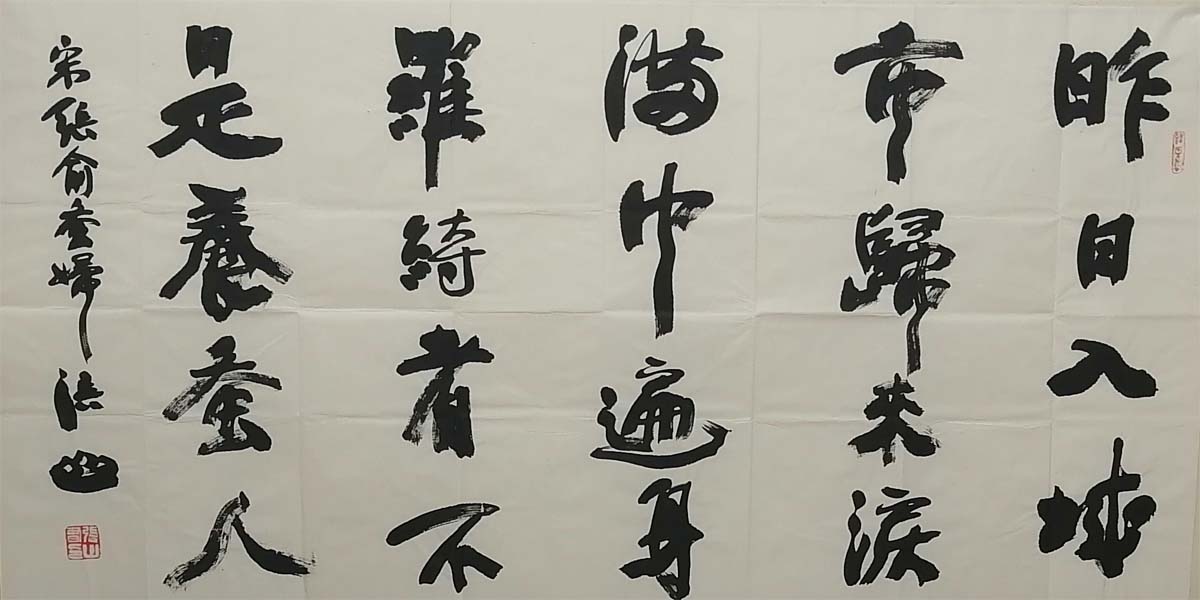 昨日入城
市歸来淚
満巾遍身
羅綺者不
是養蚕人
宋張俞蚕婦